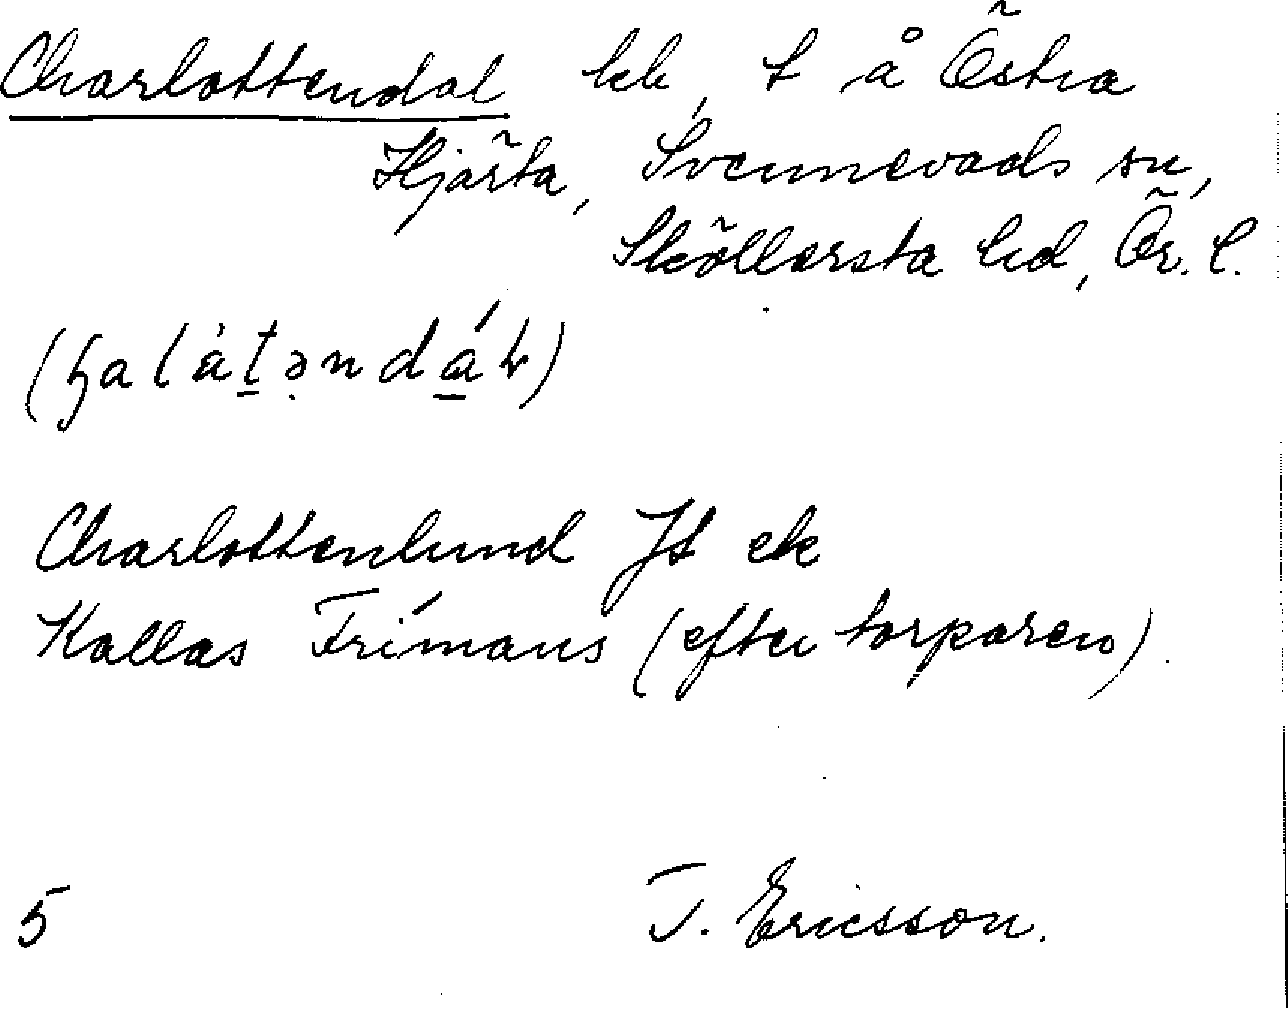 Charlottendal lht, t å Östra
Hjärta, Svennevads sn,
Sköllersta hd, Ör. l.
Charlottenlund Js ek
Kallas Frímans (efter torparen).
5 T. Ericsson.